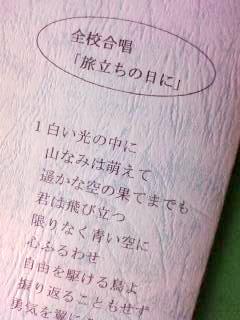 全校合唱
「旅立ちの日に」
1 白い光の中に
山なみは萌えて
遥かな空の果てまでも
君は飛び立つ
限りなく青い空に
心ふるわせ
自由を駆ける鳥よ
振り返ることもせず
勇気を翼に